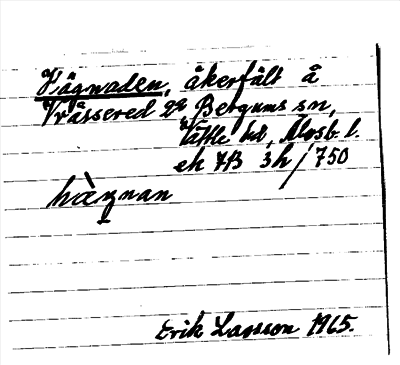 Hägnaden, åkerfält å
Vråssered 2² Bergums sn,
Vättle hd, Älvsb. l.
ek 7B 3h/750
hàgnan
Erik Larsson 1965.